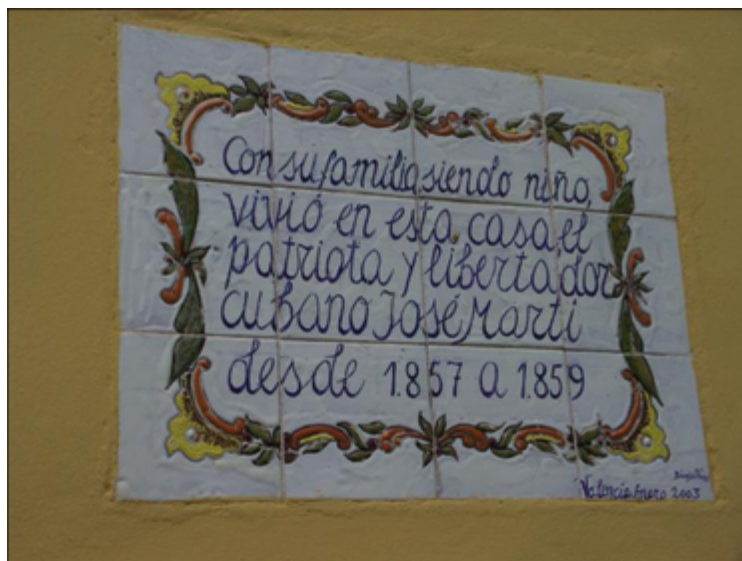 Con su familia, siendo niño,
vivió en esta casa, el
patriota y libertador
cubano José Martí
desde 1.857 a 1.859
Valencia Enero 2003